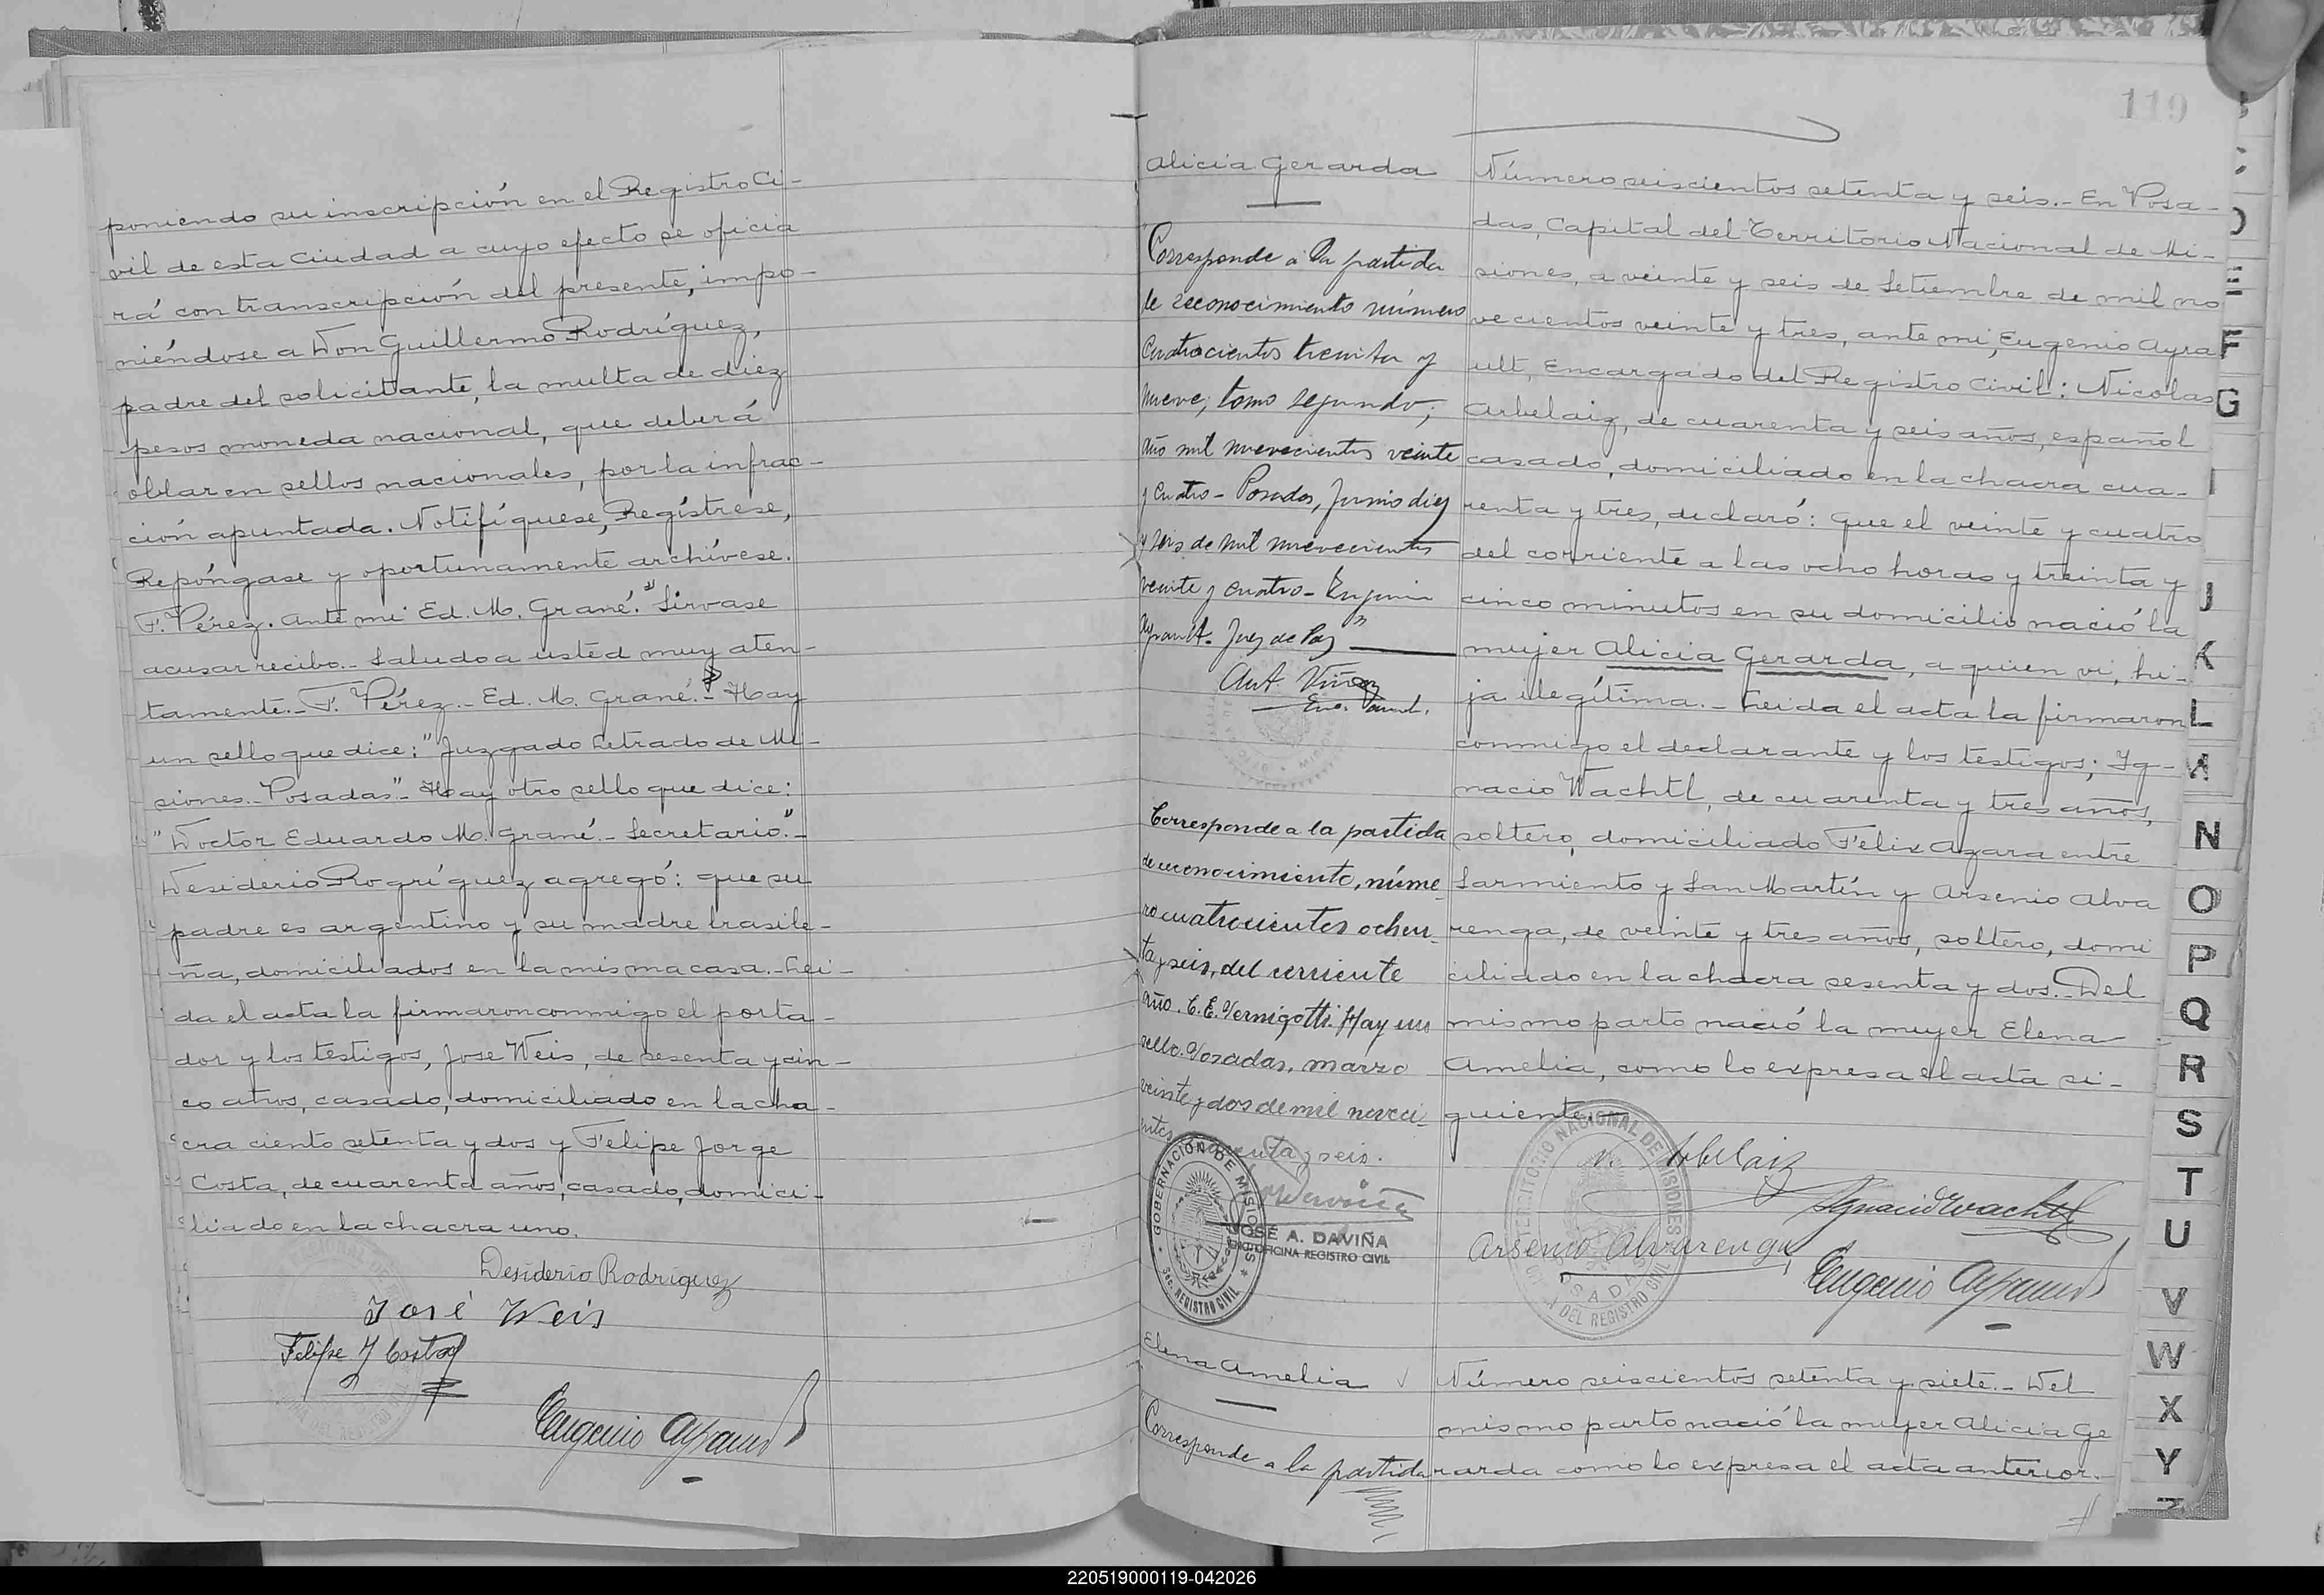 poniendo su inscripción en el Registro Ci-
vil de esta Ciudad a cuyo efecto se oficia
rá con transcripción del presente, impo-
niéndose a Don Guillermo Rodríguez,
padre del solicitante, la multa de diez
pesos moneda nacional, que deberá
oblar en sellos nacionales, por la infrac-
ción apuntada. Notifíquese, Regístrese,
Repóngase y oportunamente archívese.
F. Pérez. Ante mi Ed. M. Grané." Sirvase
acusar recibo.- Saludo a usted muy aten-
tamente.- F. Pérez.- Ed. M. Grané.- Hay
un sello que dice: "Juzgado Letrado de Mi-
siones.- Posadas".- Hay otro sello que dice:
"Doctor Eduardo M. Grané.- Secretario".-
Desiderio Rogríguez agregó: que su
padre es argentino y su madre brasile-
ña, domiciliados en la misma casa.- Lei-
da el acta la firmaron conmigo el porta-
dor y los testigos, Jose Weis, de sesenta y cin-
co años, casado, domiciliado en la cha-
cra ciento setenta y dos y Felipe Jorge
Costa, de cuarenta años, casado, domici-
liado en la chacra uno.
Desiderio Rodriguez
José Weis
Felipe J Costa
Eugenio Ayrault
119
Alicia Gerarda
Corresponde a la partida
de reconocimiento número
Cuatrocientos treinta y
nueve, tomo segundo,
año mil nuevecientos veinte
y cuatro - Posadas, Junio diez
y seis de mil nuevecientos
veinte y cuatro - Eugenio
Ayrault. Juez de Paz"
Corresponde a la partida
de reconocimiento, núme
ro cuatrocientos ochen-
ta y seis, del corriente
año. C. E. Vernigotti. Hay un
sello. Posadas, marzo
veinte y dos de mil noveci-
entos y seis.
GOBERNACION DE MISIONES
SEC. REGISTRO CIVIL
JOSÉ A. DAVIÑA
ENC. OFICINA REGISTRO CIVIL
Número seiscientos setenta y seis.- En Posa-
das, Capital del Territorio Nacional de Mi-
siones, a veinte y seis de Setiembre de mil no
vecientos veinte y tres, ante mi, Eugenio Ayra
ult, Encargado del Registro Civil: Nicolas
Arbelaiz, de cuarenta y seis años, español
casado, domiciliado en la chacra cua-
renta y tres, declaró: Que el veinte y cuatro
del corriente a las ocho horas y treinta y
cinco minutos en su domicilio nació la
mujer Alicia Gerarda, a quien vi, hi-
ja ilegítima.- Leida el acta la firmaron
conmigo el declarante y los testigos; Ig-
nacio Wachtl, de cuarenta y tres años,
soltero, domiciliado Felix Azara entre
Sarmiento y San Martín y Arsenio Alva
renga, de veinte y tres años, soltero, domi
ciliado en la chacra sesenta y dos.- Del
mismo parto nació la mujer Elena
Amelia, como lo expresa el acta si-
guiente.-
N. Arbelaiz
Ignacio Wachtl
Arsenio Alvarenga
Eugenio Ayrault
TERRITORIO NACIONAL DE MISIONES
POSADAS
DEL REGISTRO CIVIL
Elena Amelia
Corresponde a la partida
Número seiscientos setenta y siete.- Del
mismo parto nació la mujer Alicia Ge
rarda como lo expresa el acta anterior.-
E
F
G
I
J
K
L
M
N
O
P
Q
R
S
T
U
V
W
X
Y
Z
220519000119-042026